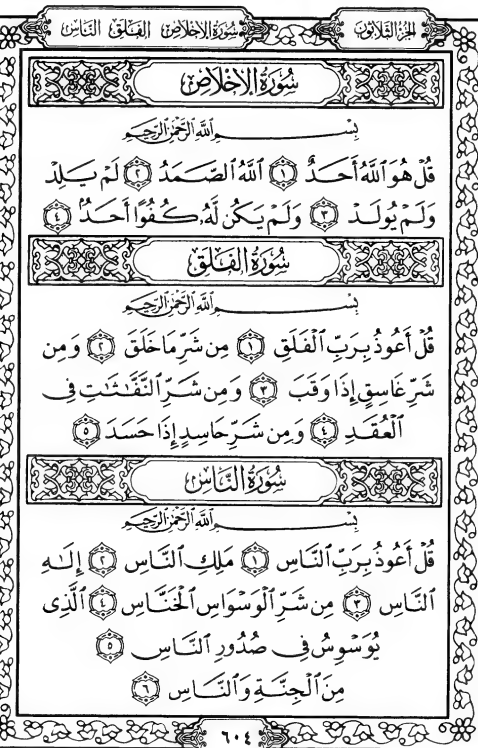 سُورَةُ الإِخْلَاصِ الْفَلَقِ النَّاسِ
الجُزْءُ الثَّلَاثُونَ
سُورَةُ الإِخْلَاصِ
بِسْمِ ٱللَّهِ ٱلرَّحْمَٰنِ ٱلرَّحِيمِ
قُلْ هُوَ ٱللَّهُ أَحَدٌ ١ ٱللَّهُ ٱلصَّمَدُ ٢ لَمْ يَلِدْ
وَلَمْ يُولَدْ ٣ وَلَمْ يَكُن لَّهُۥ كُفُوًا أَحَدٌۢ ٤
سُورَةُ الْفَلَقِ
بِسْمِ ٱللَّهِ ٱلرَّحْمَٰنِ ٱلرَّحِيمِ
قُلْ أَعُوذُ بِرَبِّ ٱلْفَلَقِ ١ مِن شَرِّ مَا خَلَقَ ٢ وَمِن
شَرِّ غَاسِقٍ إِذَا وَقَبَ ٣ وَمِن شَرِّ ٱلنَّفَّٰثَٰتِ فِى
ٱلْعُقَدِ ٤ وَمِن شَرِّ حَاسِدٍ إِذَا حَسَدَ ٥
سُورَةُ النَّاسِ
بِسْمِ ٱللَّهِ ٱلرَّحْمَٰنِ ٱلرَّحِيمِ
قُلْ أَعُوذُ بِرَبِّ ٱلنَّاسِ ١ مَلِكِ ٱلنَّاسِ ٢ إِلَٰهِ
ٱلنَّاسِ ٣ مِن شَرِّ ٱلْوَسْوَاسِ ٱلْخَنَّاسِ ٤ ٱلَّذِى
يُوَسْوِسُ فِى صُدُورِ ٱلنَّاسِ ٥
مِنَ ٱلْجِنَّةِ وَٱلنَّاسِ ٦
٦٠٤